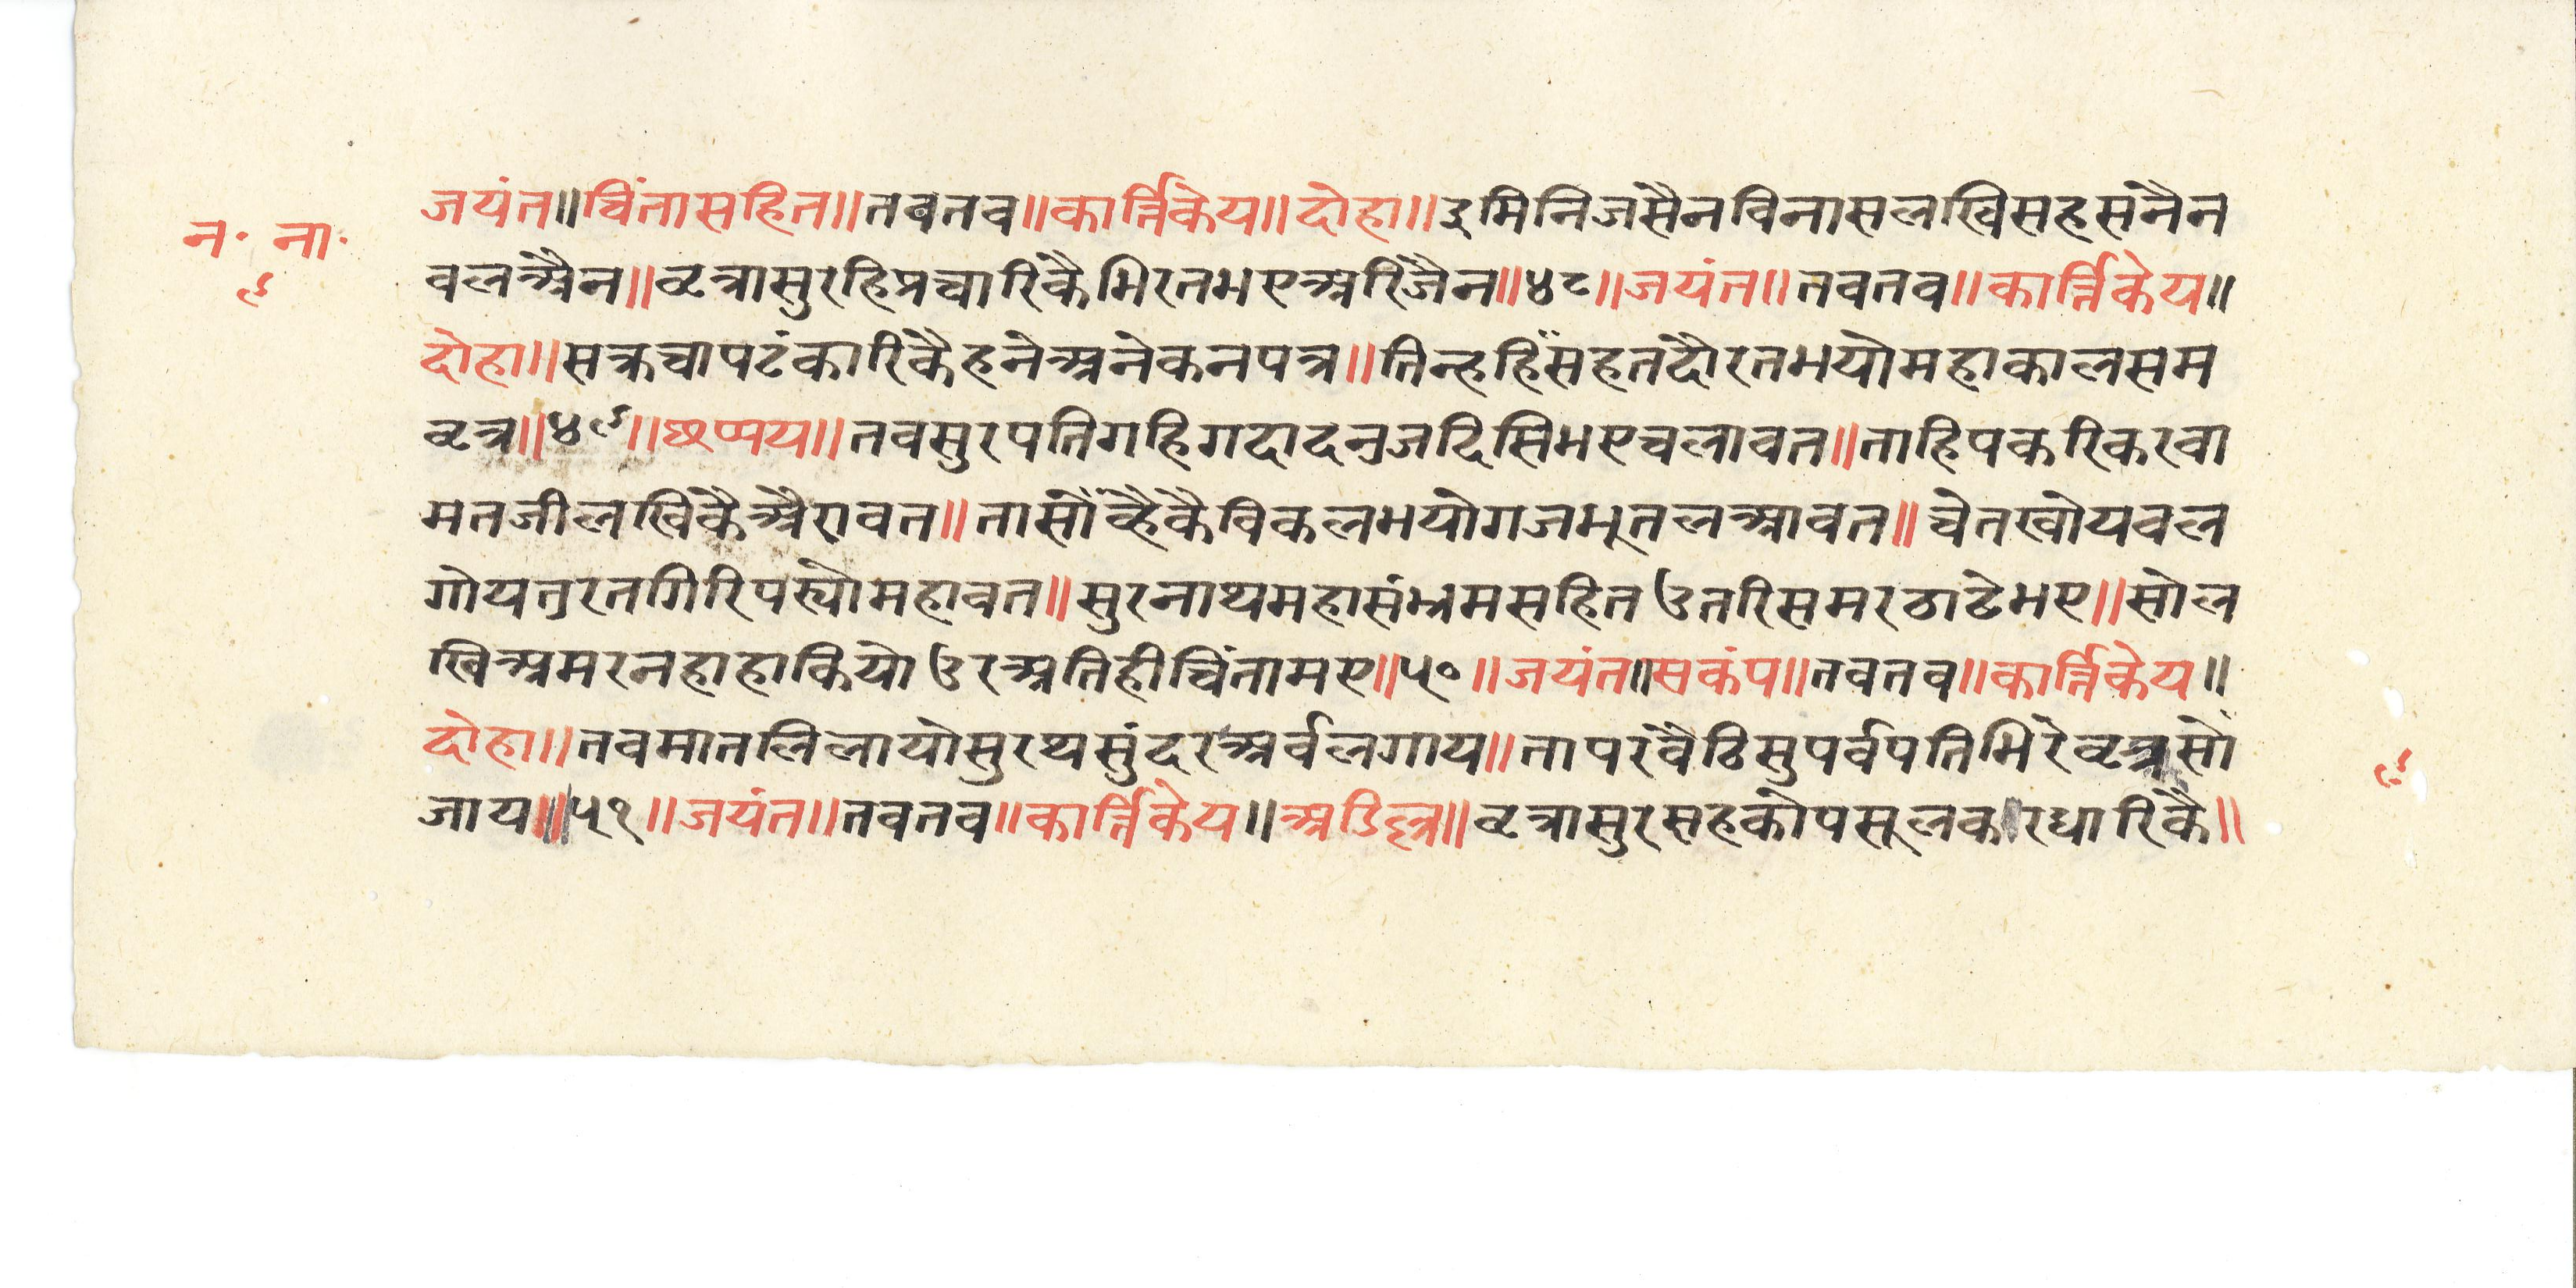 जयंत॥चिंतासहित॥तवतव॥कार्त्तिकेय॥दोहा॥इमिनिजसैनविनासलखिसहसनैन
न॰ ना॰
वलअैन॥वृत्रासुरहिप्रचारिकैभिरतभएअरिजैन॥४८॥जयंत॥तवतव॥कार्त्तिकेय॥
९
दोहा॥सक्रचापटंकारिकैहनेअनेकनपत्र॥तिन्हहिंसहतदौरतभयोमहाकालसम
वृत्र॥४९॥छप्पय॥तवसुरपतिगहिगदादनुजदिसिभएचलावत॥ताहिपकरिकरवा
मतजीलखिकैअैरावत॥तासौंव्हैकैविकलभयोगजभूतलआवत॥चेतखोयवल
गोयतुरतगिरिपस्योमहावत॥सुरनाथमहासंभ्रमसहितउतरिसमरठाढेभए॥सोल
खिअमरनहाहाकियोउरअतिहीचिंतामए॥५०॥जयंत॥सकंप॥तवतव॥कार्त्तिकेय॥
दोहा॥तवमातलिलायोसुरथसुंदरअर्वलगाय॥तापरवैठिसुपर्वपतिभिरेवृत्रसों
९
जाय॥५१॥जयंत॥तवतव॥कार्त्तिकेय॥अडिल्ल॥वृत्रासुरसहकोपसूलकरधारिकै॥